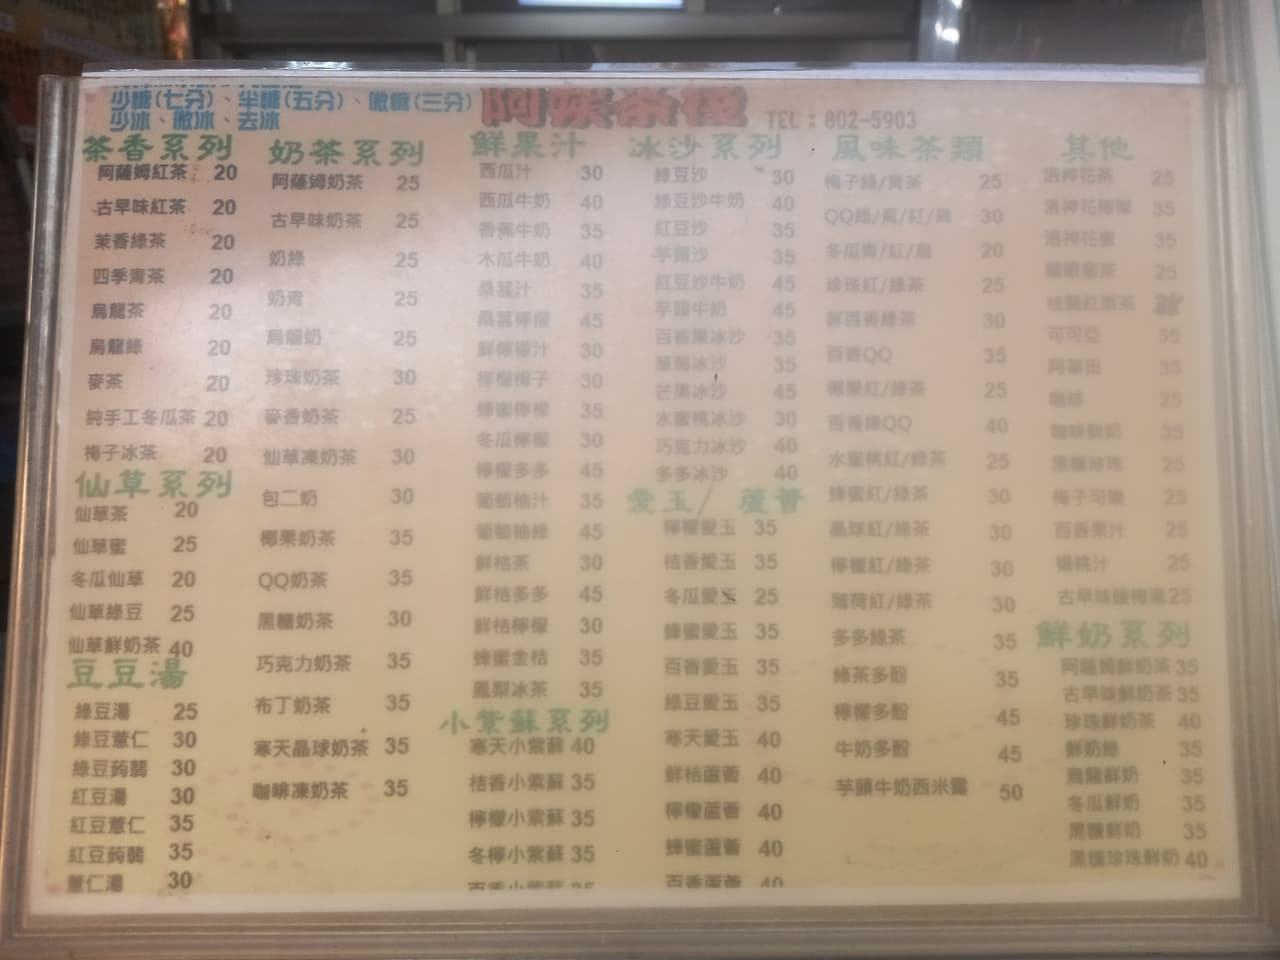 少糖(七分)、半糖(五分)、微糖(三分)
少冰、微冰、去冰
阿 茶棧
TEL：802-5903
茶香系列
阿薩姆紅茶 20
古早味紅茶 20
茉香綠茶 20
四季青茶 20
烏龍茶 20
烏龍綠 20
麥茶 20
純手工冬瓜茶 20
梅子冰茶 20
仙草系列
仙草茶 20
仙草蜜 25
冬瓜仙草 20
仙草綠豆 25
仙草鮮奶茶 40
豆豆湯
綠豆湯 25
綠豆薏仁 30
綠豆蒟蒻 30
紅豆湯 30
紅豆薏仁 35
紅豆蒟蒻 35
薏仁湯 30
奶茶系列
阿薩姆奶茶 25
古早味奶茶 25
奶綠 25
奶青 25
烏龍奶 25
珍珠奶茶 30
麥香奶茶 25
仙草凍奶茶 30
包二奶 30
椰果奶茶 35
QQ奶茶 35
黑糖奶茶 30
巧克力奶茶 35
布丁奶茶 35
寒天晶球奶茶 35
咖啡凍奶茶 35
鮮果汁
西瓜汁 30
西瓜牛奶 40
香蕉牛奶 35
木瓜牛奶 40
桑葚汁 35
桑葚檸檬 45
鮮檸檬汁 30
檸檬梅子 30
蜂蜜檸檬 35
冬瓜檸檬 30
檸檬多多 45
葡萄柚汁 35
葡萄柚綠 45
鮮桔茶 30
鮮桔多多 45
鮮桔檸檬 30
蜂蜜金桔 35
鳳梨冰茶 35
小紫蘇系列
寒天小紫蘇 40
桔香小紫蘇 35
檸檬小紫蘇 35
冬檸小紫蘇 35
百香小紫蘇 35
冰沙系列
綠豆沙 30
綠豆沙牛奶 40
紅豆沙 35
芋頭沙 35
紅豆沙牛奶 45
芋頭牛奶 45
百香果冰沙 35
草莓冰沙 35
芒果冰沙 45
水蜜桃冰沙 30
巧克力冰沙 40
多多冰沙 40
愛玉/蘆薈
檸檬愛玉 35
桔香愛玉 35
冬瓜愛玉 25
蜂蜜愛玉 35
百香愛玉 35
綠豆愛玉 35
寒天愛玉 40
鮮桔蘆薈 40
檸檬蘆薈 40
蜂蜜蘆薈 40
百香蘆薈 40
風味茶類
梅子綠/青茶 25
QQ綠/青/紅/烏 30
冬瓜青/紅/烏 20
珍珠紅/綠茶 25
鮮百香綠茶 30
百香QQ 35
椰果紅/綠茶 25
百香綠QQ 40
水蜜桃紅/綠茶 25
蜂蜜紅/綠茶 30
晶球紅/綠茶 30
檸檬紅/綠茶 30
薄荷紅/綠茶 30
多多綠茶 35
綠茶多酚 35
檸檬多酚 45
牛奶多酚 45
芋頭牛奶西米露 50
其他
洛神花茶 25
洛神花檸檬 35
洛神花蜜 35
龍眼蜜茶 25
桂圓紅棗茶
可可亞 35
阿華田 35
咖啡 25
咖啡鮮奶 35
黑糖珍珠 25
梅子可樂 25
百香果汁 25
楊桃汁 25
古早味酸梅湯 25
鮮奶系列
阿薩姆鮮奶茶 35
古早味鮮奶茶 35
珍珠鮮奶茶 40
鮮奶綠 35
烏龍鮮奶 35
冬瓜鮮奶 35
黑糖鮮奶 35
黑糖珍珠鮮奶 40